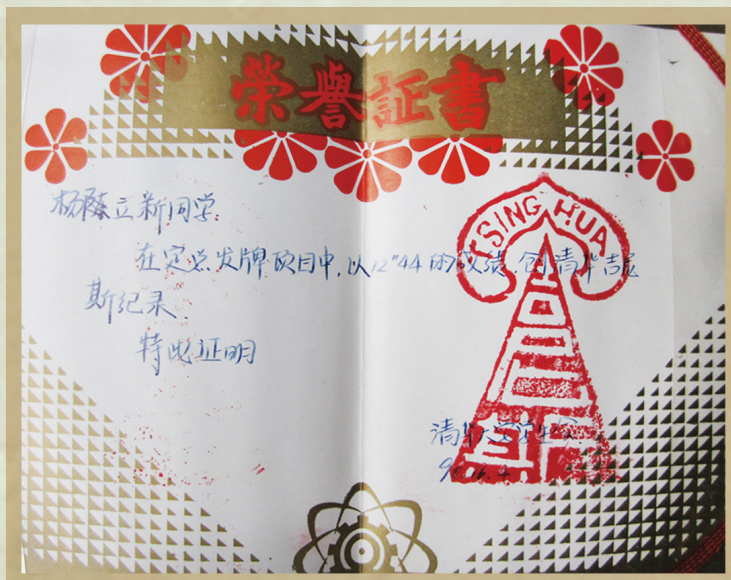 榮譽証書
杨臻立新同学:
在定点发牌项目中,以12"44的成绩,创清华吉尼
斯纪录.
特此证明
TSING HUA
清华大学学生会